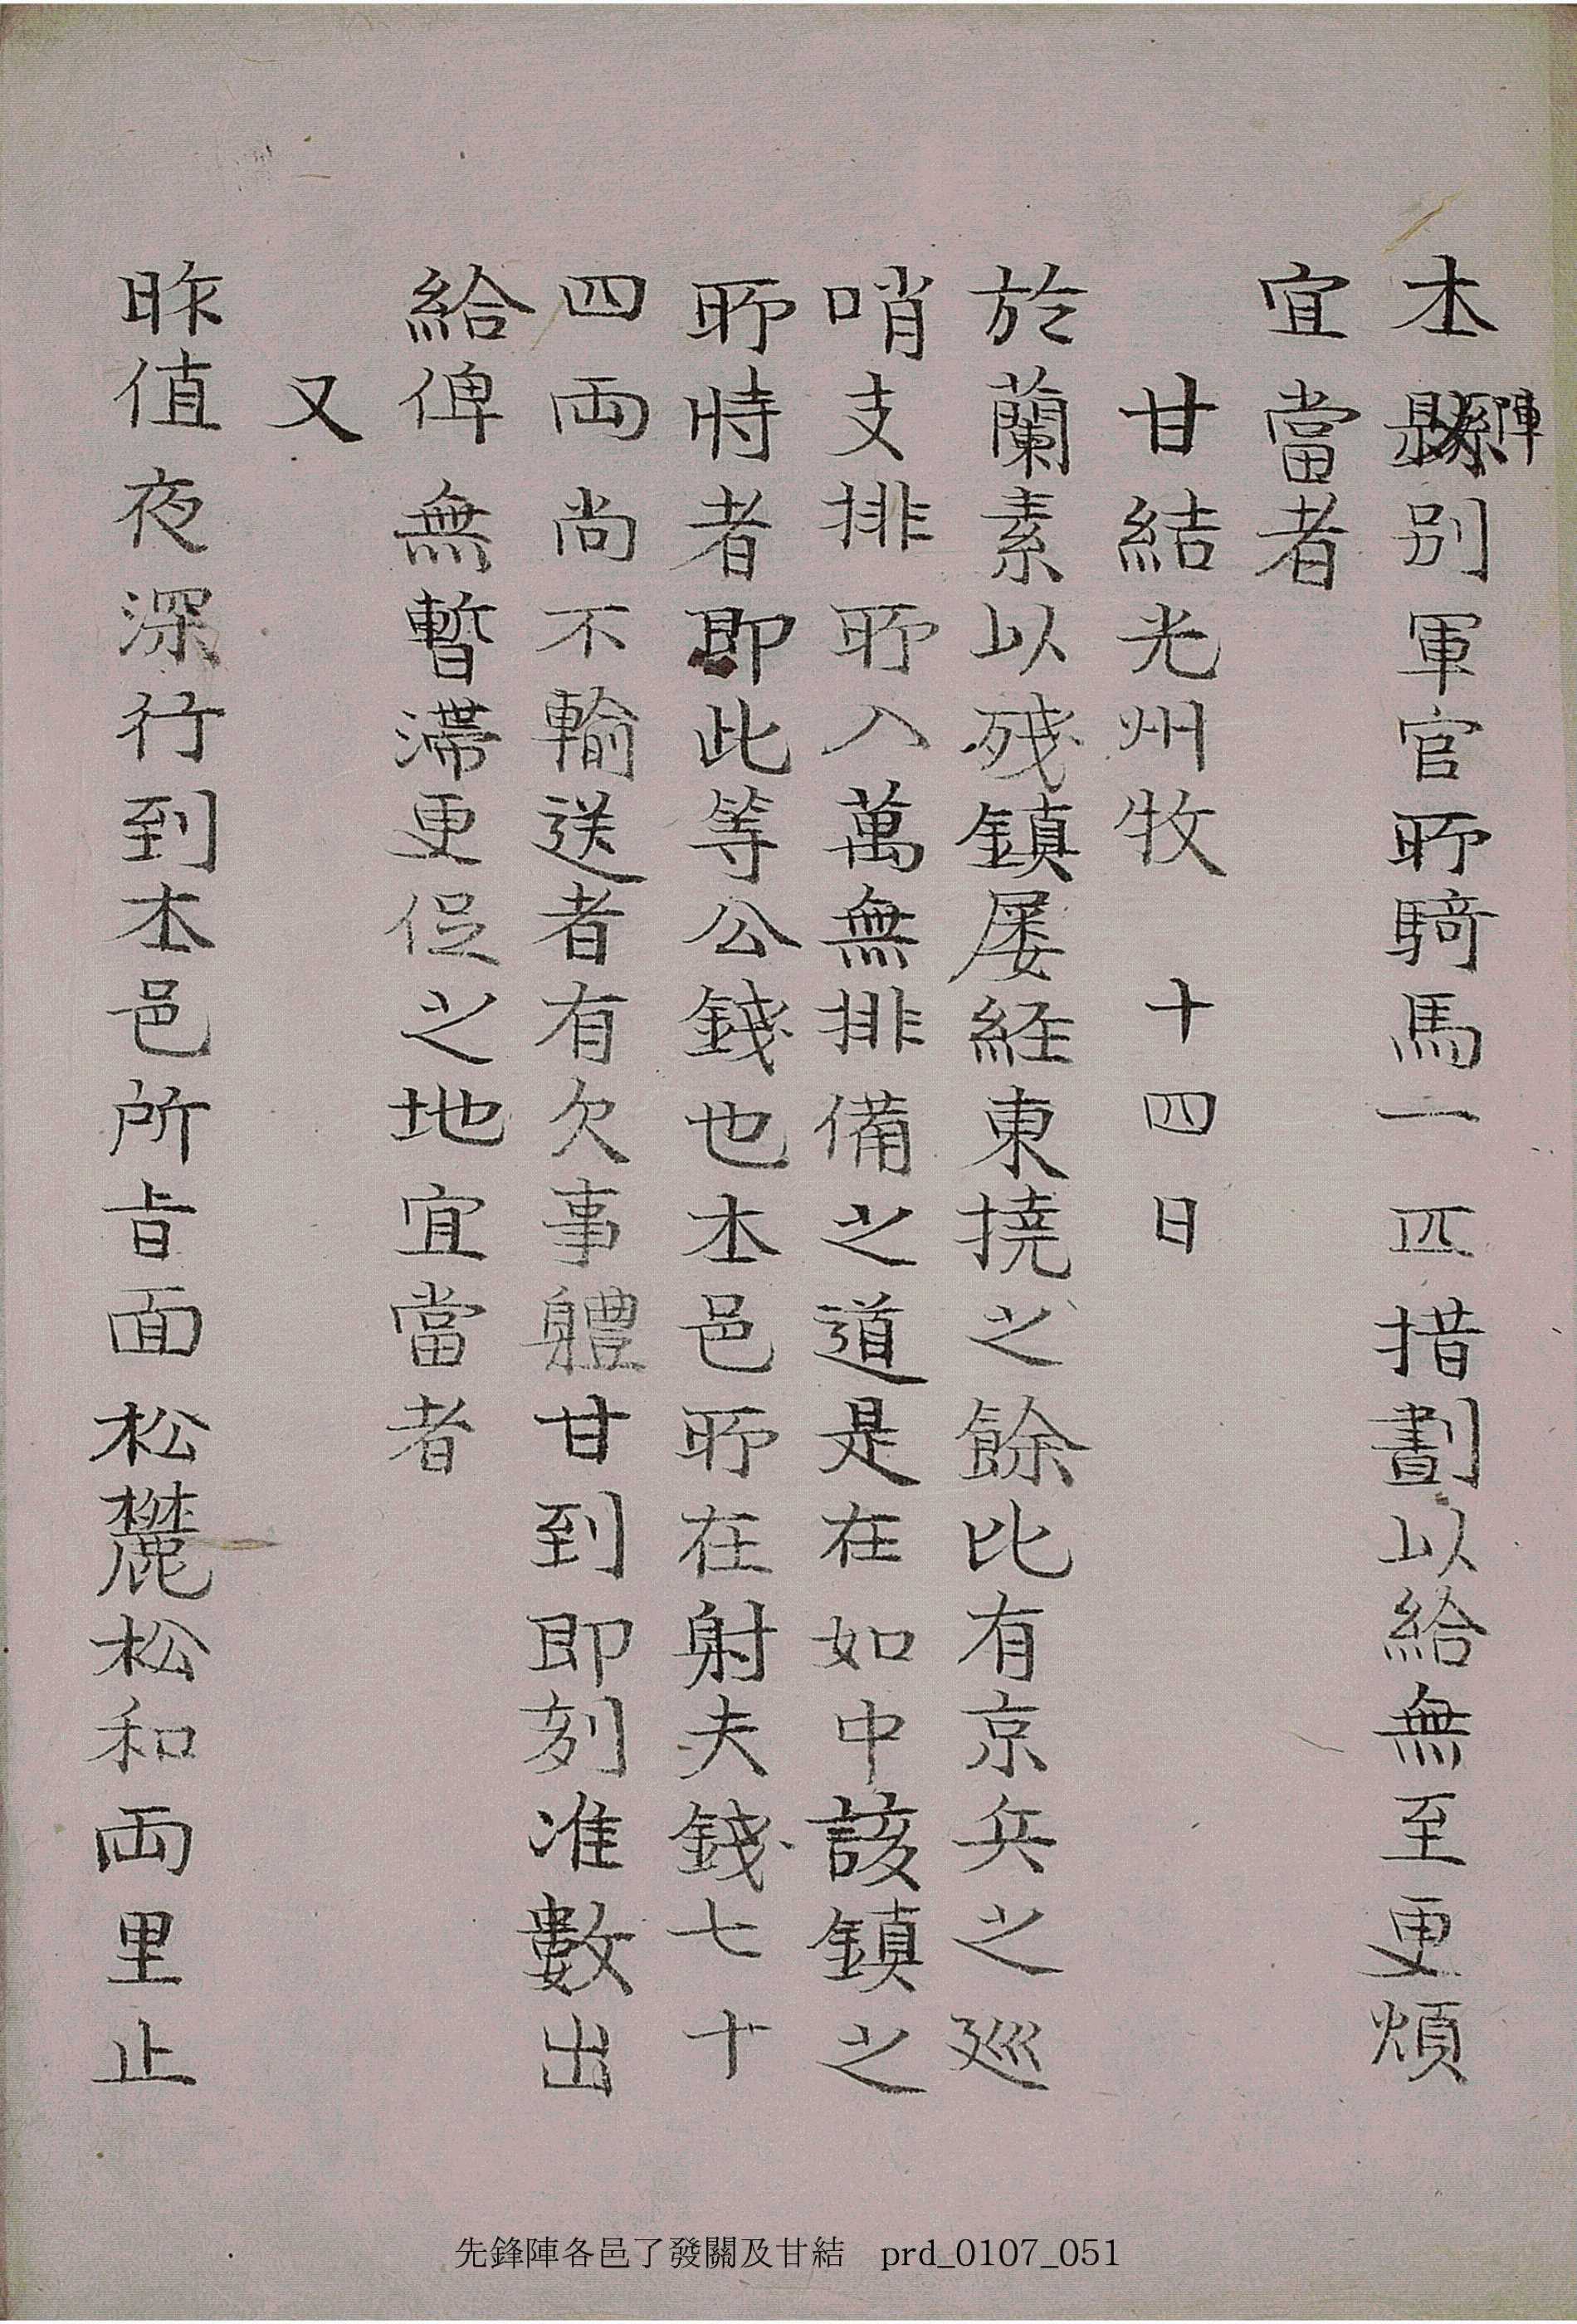 本縣陣別軍官所騎馬一匹措劃以給無至更煩
宜當者
甘結光州牧 十四日
於蘭素以殘鎮屢経東撓之餘比有京兵之廵
哨支排所入萬無排備之道是在如中該鎮之
所恃者即此等公錢也本邑所在射夫錢七十
四両尚不輸送者有欠事軆甘到即刻准數出
給俾無暫滯更促之地宜當者
又
昨值夜深行到本邑所旨面松麓松和両里止
先鋒陣各邑了發關及甘結 prd_0107_051